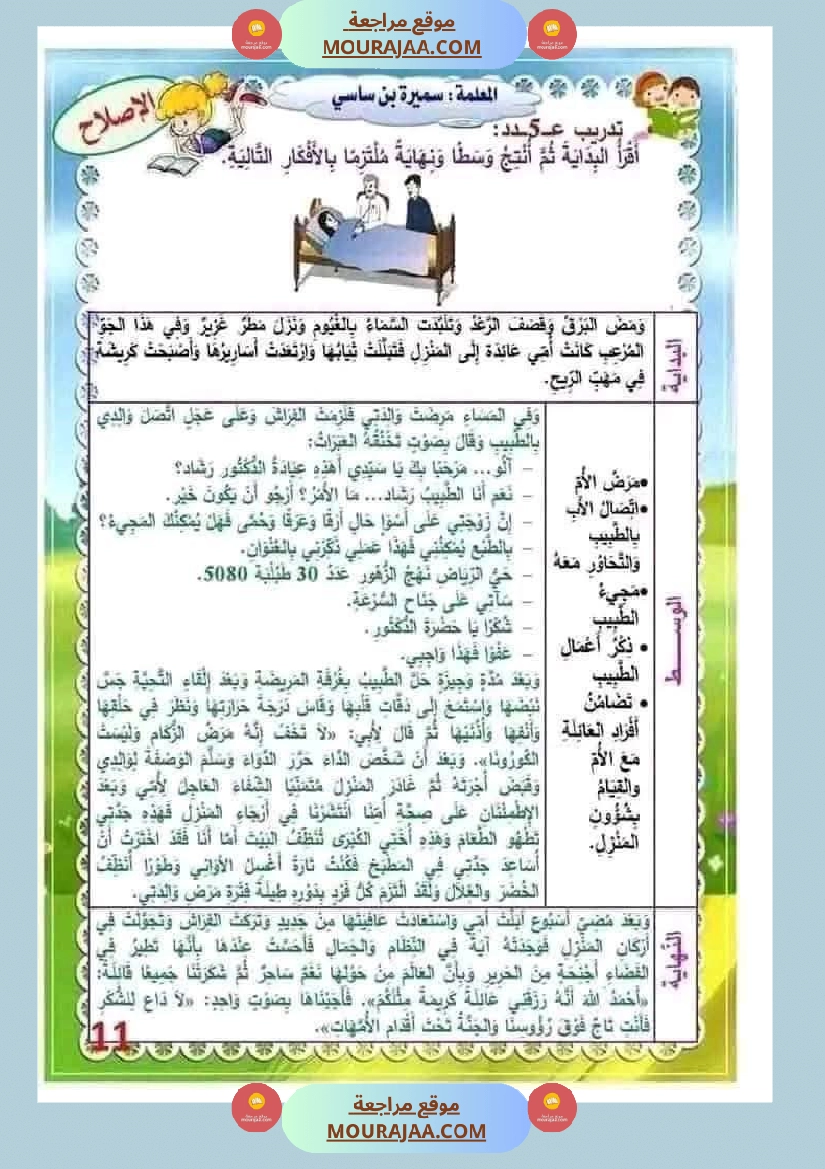 موقع مراجعة
MOURAJAA.COM
المعلمة : سميرة بن ساسي
الإصلاح
تدريب عـ5ـدد:
أَقْرَأُ البِدَايَةَ ثُمَّ أُنْتِجُ وَسَطًا وَنِهَايَةً مُلْتَزِمًا بِالأَفْكَارِ التَّالِيَةِ.
البداية
وَمَضَ البَرْقُ وَقَصَفَ الرَّعْدُ وَتَلَبَّدَت السَّمَاءُ بِالغُيُومِ وَنَزَلَ مَطَرٌ غَزِيرٌ وَفِي هَذَا الجَوِّ
المُرْعِبِ كَانَتْ أُمِّي عَائِدَة إِلَى المَنْزِلِ فَتَبَلَّلَتْ ثِيَابُهَا وَارْتَعَدَتْ أَسَارِيرُهَا وَأَصْبَحَتْ كَرِيشَةٍ
فِي مَهَبِّ الرِّيحِ.
الوسط
•مَرَضُ الأُمِّ
•اتِّصَالُ الأَبِ
بِالطَّبِيبِ
وَالتَّحَاوُرِ مَعَهُ
•مَجِيءُ
الطَّبِيبِ
• ذِكْرُ أَعْمَالِ
الطَّبِيبِ
• تَضَامُنُ
أَفْرَادِ العَائِلَةِ
مَعَ الأُمِّ
والقِيَامُ
بِشُؤُونِ
المَنْزِلِ.
وَفِي المَسَاءِ مَرِضَتْ وَالِدَتِي فَلَزِمَتْ الفِرَاشَ وَعَلَى عَجَلٍ اتَّصَلَ وَالِدِي
بِالطَّبِيبِ وَقَالَ بِصَوْتٍ تَخْنُقُهُ العَبَرَاتُ:
– آلُو... مَرْحَبًا بِكَ يَا سَيِّدِي أَهَذِهِ عِيَادَةُ الدُّكْتُور رَشَاد؟
– نَعَم أَنَا الطَّبِيبُ رَشَاد... مَا الأَمْرُ؟ أَرْجُو أَنْ يَكُونَ خَيْر.
– إِنَّ زَوْجَتِي عَلَى أَسْوَإِ حَالٍ أَرَقًا وَعَرَقًا وَحُمَّى فَهَلْ يُمْكِنُكَ المَجِيءُ؟
– بِالطَّبْعِ يُمْكِنُنِي فَهَذَا عَمَلِي ذَكِّرْنِي بِالعُنْوَان.
– حَيُّ الرِّيَاضِ نَهْجُ الزُّهُور عَدَدُ 30 طَبُلْبَة 5080.
– سَآتِي عَلَى جَنَاحِ السُّرْعَةِ.
– شُكْرًا يَا حَضْرَةَ الدُّكْتُورِ.
– عَفْوًا فَهَذَا وَاجِبِي.
وَبَعْدَ مُدَّةٍ وَجِيزَةٍ حَلَّ الطَّبِيبُ بِغُرْفَةِ المَرِيضَةِ وَبَعْدَ إِلْقَاءِ التَّحِيَّةِ جَسَّ
نَبْضَهَا وَاسْتَمَعَ إِلَى دَقَّاتِ قَلْبِهَا وَقَاسَ دَرَجَةَ حَرَارَتِهَا وَنَظَرَ فِي حَلْقِهَا
وَأَنْفِهَا وَأُذُنَيْهَا ثُمَّ قَالَ لأَبِي: «لاَ تَخَفْ إِنَّهُ مَرَضُ الزُّكَام وَلَيْسَتْ
الكُورُونَا». وَبَعْدَ أَنْ شَخَّصَ الدَّاءَ حَرَّرَ الدَّوَاءَ وَسَلَّمَ الوَصْفَةَ لِوَالِدِي
وَقَبَضَ أُجْرَتَهُ ثُمَّ غَادَرَ المَنْزِلَ مُتَمَنِّيًا الشِّفَاءَ العَاجِلَ لِأُمِّي وَبَعْدَ
الإِطْمِئْنَانِ عَلَى صِحَّةِ أُمِّنَا انْتَشَرْنَا فِي أَرْجَاءِ المَنْزِلِ فَهَذِهِ جَدَّتِي
تَطْهُو الطَّعَامَ وَهَذِهِ أُخْتِي الكُبْرَى تُنَظِّفُ البَيْتَ أَمَّا أَنَا فَقَدْ اخْتَرْتُ أَنْ
أُسَاعِدَ جَدَّتِي فِي المَطْبَخِ فَكُنْتُ تَارَةً أَغْسِلُ الأَوَانِي وَطَوْرًا أُنَظِّفُ
الخُضَرَ وَالغِلاَلَ وَلَقَدْ الْتَزَمَ كُلُّ فَرْدٍ بِدَوْرِهِ طِيلَةَ فَتْرَةِ مَرَضِ وَالِدَتِي.
النهاية
وَبَعْدَ مُضِيِّ أُسْبُوعٍ أَبَلَّتْ أُمِّي وَاسْتَعَادَتْ عَافِيَتَهَا مِنْ جَدِيدٍ وَتَرَكَتْ الفِرَاشَ وَتَجَوَّلَتْ فِي
أَرْكَانِ المَنْزِلِ فَوَجَدَتْهُ آيَةً فِي النِّظَامِ وَالجَمَالِ فَأَحَسَّتْ عِنْدَهَا بِأَنَّهَا تَطِيرُ فِي
الفَضَاءِ أَجْنِحَةٌ مِنَ الحَرِيرِ وَبِأَنَّ العَالَمَ مِنْ حَوْلِهَا نَغَمٌ سَاحِرٌ ثُمَّ شَكَرَتْنَا جَمِيعًا قَائِلَةً:
«أَحْمَدُ اللهَ أَنَّهُ رَزَقَنِي عَائِلَةً كَرِيمَةً مِثْلَكُمْ». فَأَجَبْنَاهَا بِصَوْتٍ وَاحِدٍ: «لاَ دَاعٍ لِلشُّكْرِ
فَأَنْتِ تَاجٌ فَوْقَ رُؤُوسِنَا وَالجَنَّةُ تَحْتَ أَقْدَامِ الأُمَّهَاتِ».
11
موقع مراجعة
MOURAJAA.COM